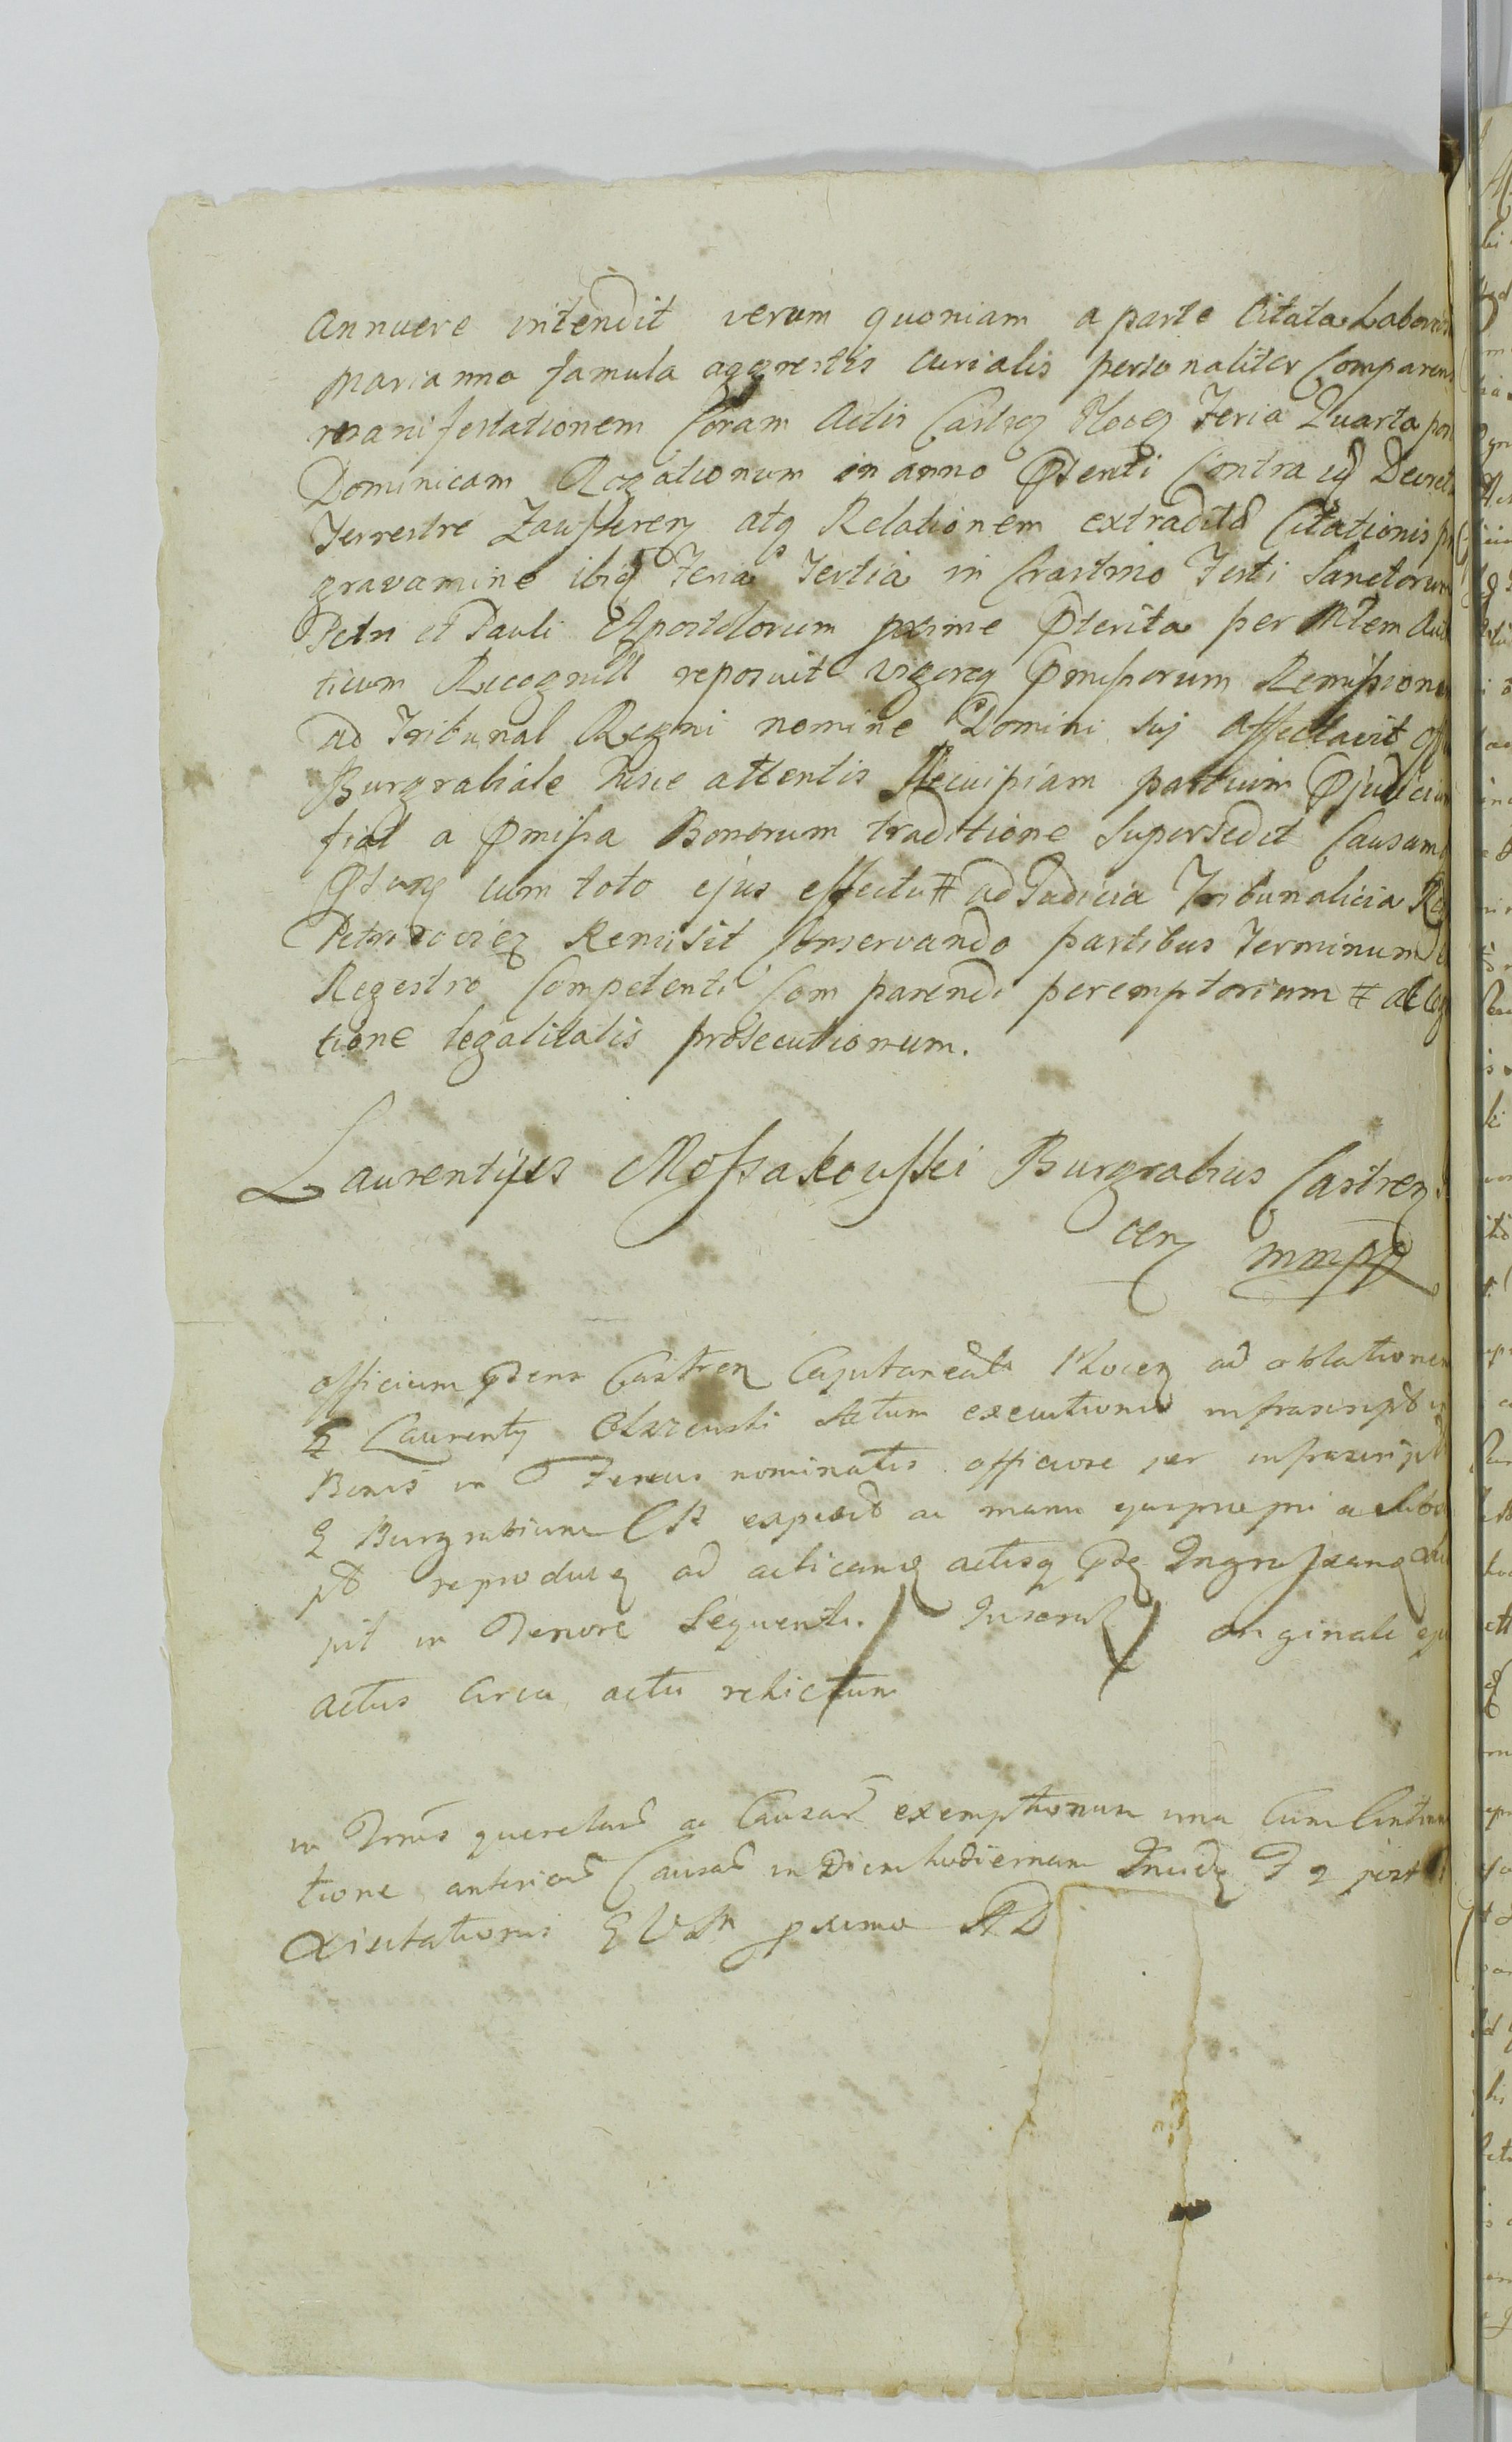 annuere intendit verum quoniam a parte Citata Labor
Marianna famula aggrestis curialis personaliter Comparens
manifestationem Coram Actis Castreñ Ploceñ Feria Quarta pos
Dominicam Rogationum in anno Pñti Contra id Decret
Terrestre Zauskrzeñ atq Relationem extradită Citationis pr
gravamine ibiq Feria Tertia in Crastino Festi Sanctorum
Petri et Pauli Apostolorum pxime Pterita per Mtem Aut
ticum Recognită reposuit vigoreq Pmissorum Remissione
ad Tribunal Regni nomine Domini sui affectavit Off
Burgrabiale hisce attentis Ne cuipiam partium Pjudicium
fiat a Pmissa Bonorum traditione Supersedit Causamq
Ptang cum toto ejus effectu # ad Judicia Tribunalicia Reg
Petricovieñ Remisit Conservando partibus Terminum
Regestro Competenti Comparendi peremptorium #
tione legalitatis prosecutionum.
Laurentius Mossakouski Burgrabius Castreñ
ceñ mmpp
officium Pens Castreñ Capitaneale Ploceñ ad oblationem
G Laurentÿ Actum executionis infrascript in
Bonis in nominatis officiose per infrascript
G Burgrabium expedit ac manu ejus propri a
pt reproducq ad acticandq actisq Pt Ingrossandq
pit in Tenore Sequenti. Inserat originale eju
actus circa acta relictum
in querelarũ ac Causarũ exemptionum una Cum Contin
tione anteriorũ Causarũ in Diem hodiernam F 2 post
pxima AD